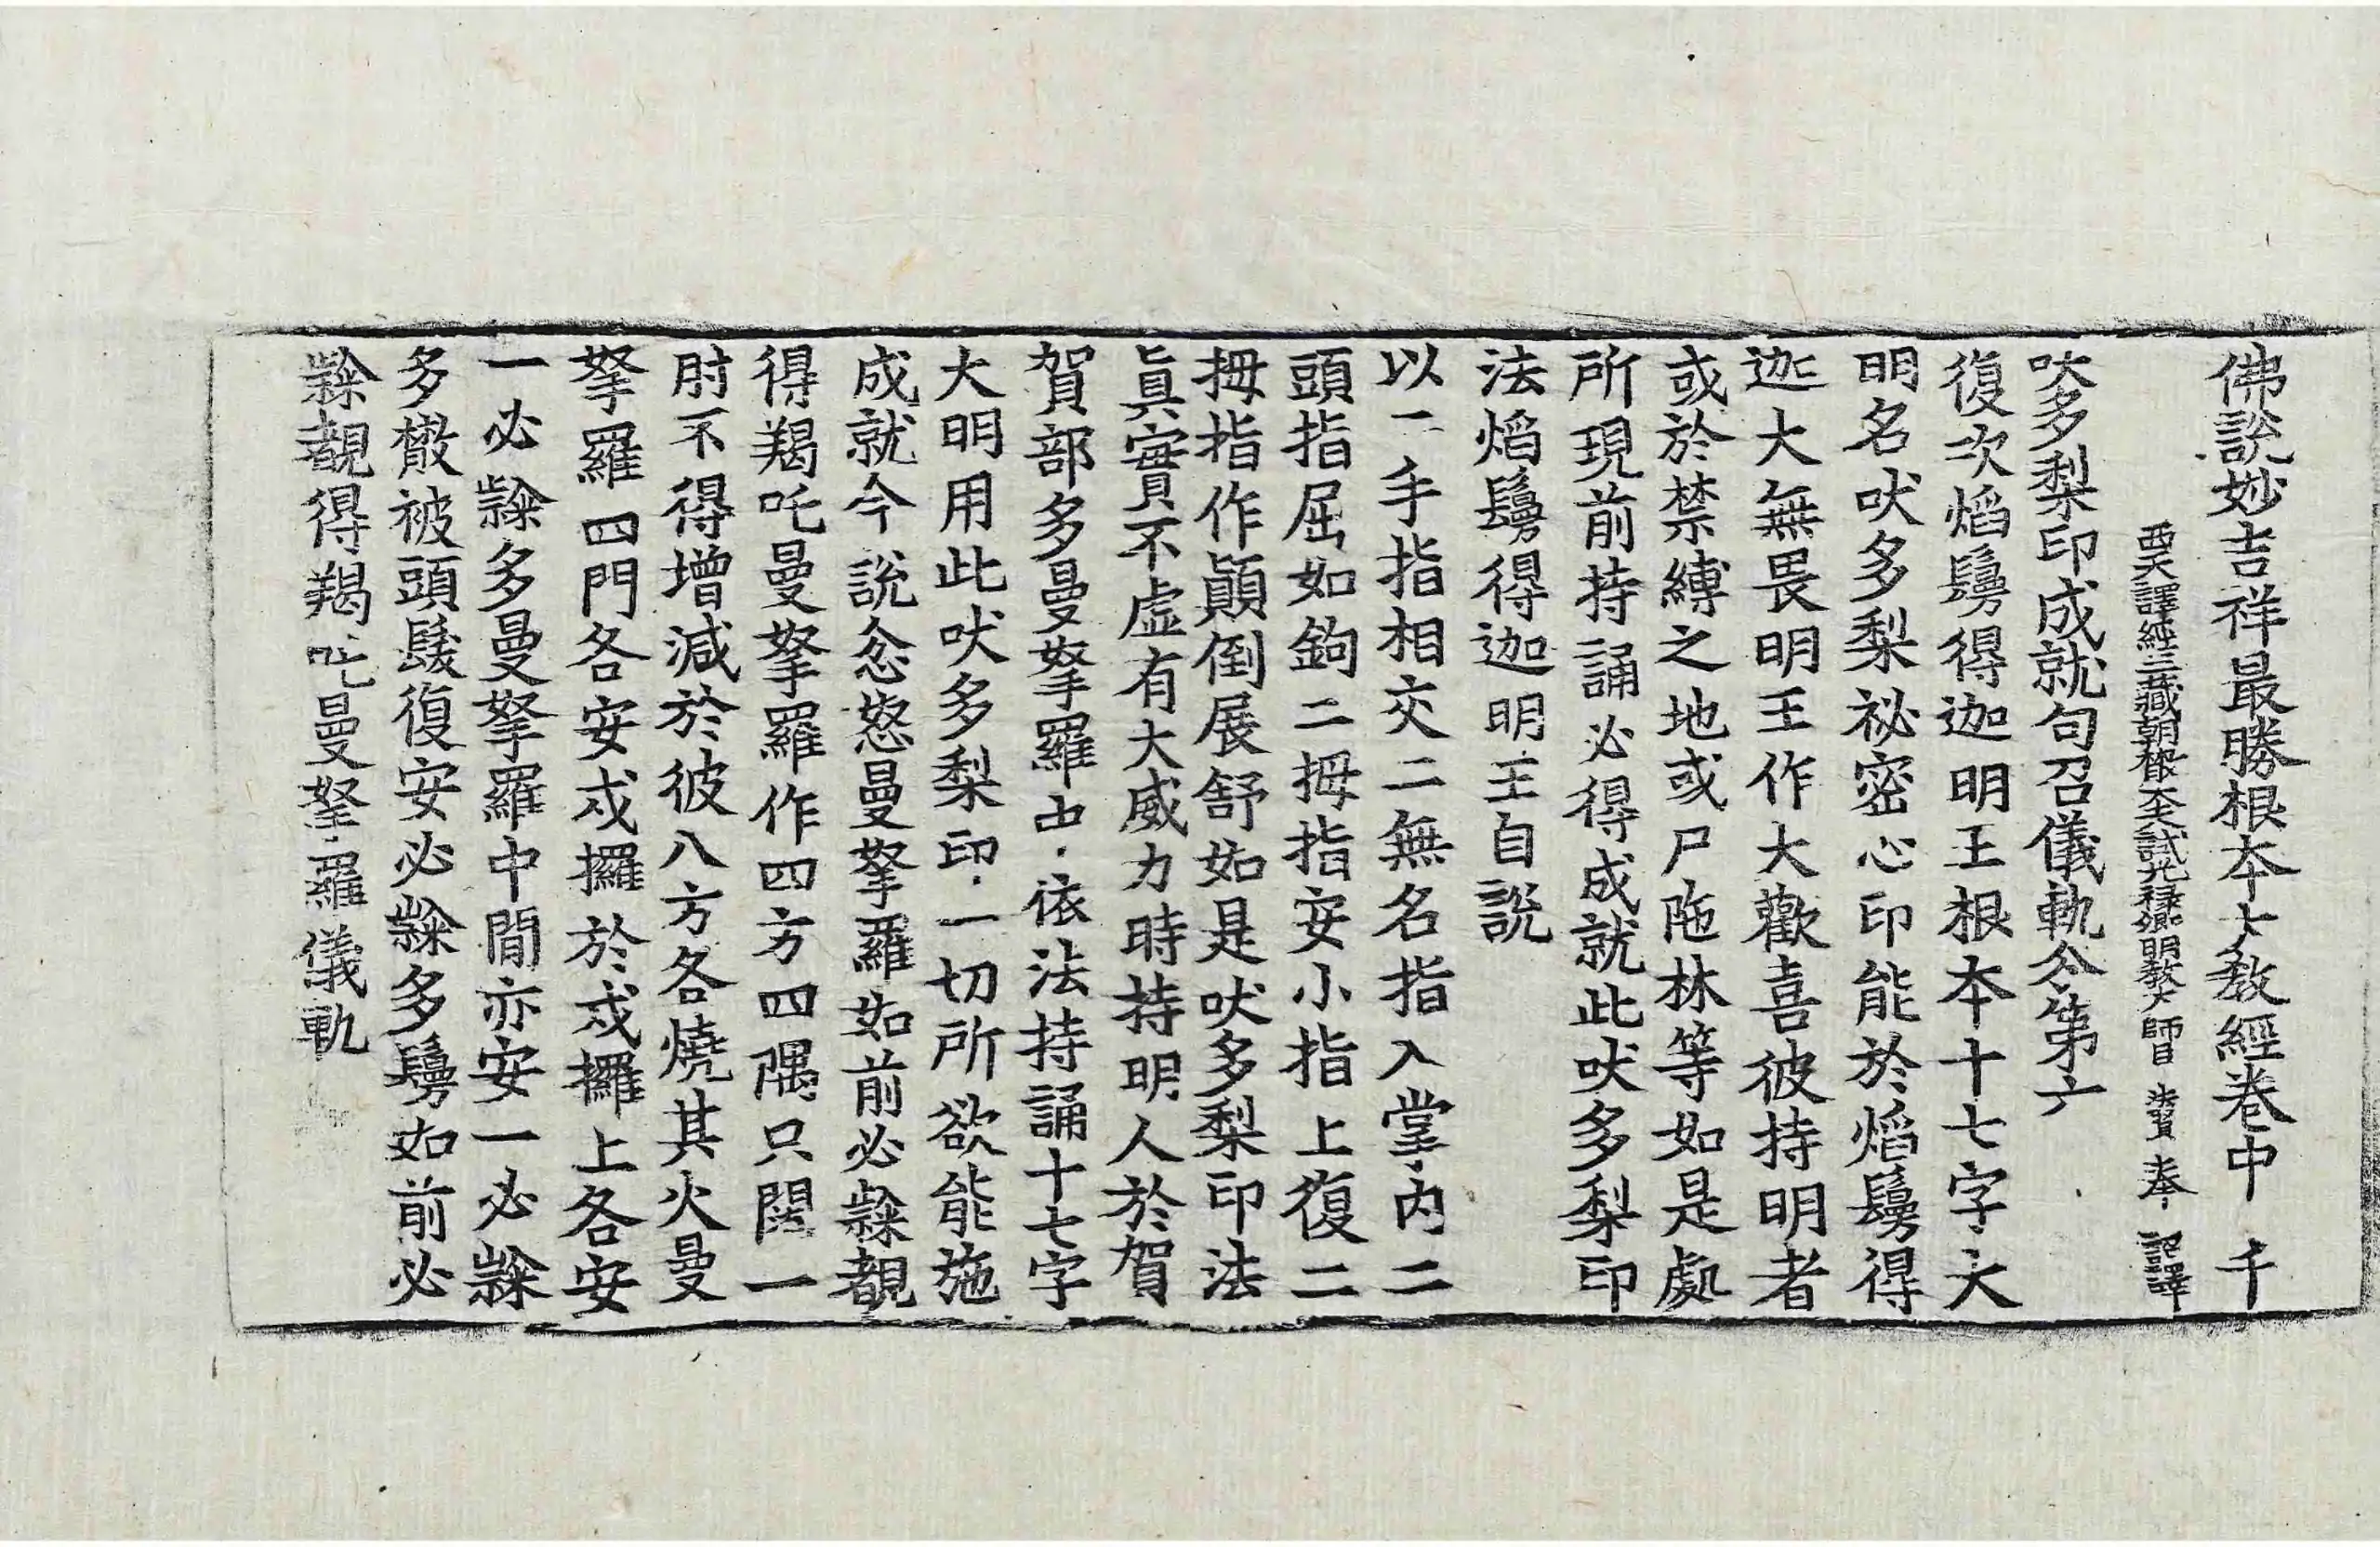 佛說妙吉祥最勝根本大教經卷中　千
西天譯經三藏朝散大夫試光祿卿明教大師臣 法賢 奉 詔譯
吠多梨印成就句召儀軌分第六
復次焰鬘得迦明王根本十七字大
明名吠多梨祕密心印能於焰鬘得
迦大無畏明王作大歡喜彼持明者
或於禁縛之地或尸陁林等如是處
所現前持誦必得成就此吠多梨印
法焰鬘得迦明王自說
以二手指相交二無名指入掌內二
頭指屈如鉤二拇指安小指上復二
拇指作顛倒展舒如是吠多梨印法
眞實不虛有大威力時持明人於賀
賀部多曼拏羅中依法持誦十七字
大明用此吠多梨印一切所欲能施
成就今說忿怒曼拏羅如前必㘑覩
得羯吒曼拏羅作四方四隅只闊一
肘不得增減於彼八方各燒其火曼
拏羅四門各安戍攞於戍攞上各安
一必㘑多曼拏羅中間亦安一必㘑
多撒被頭髮復安必㘑多鬘如前必
㘑覩得羯吒曼拏羅儀軌